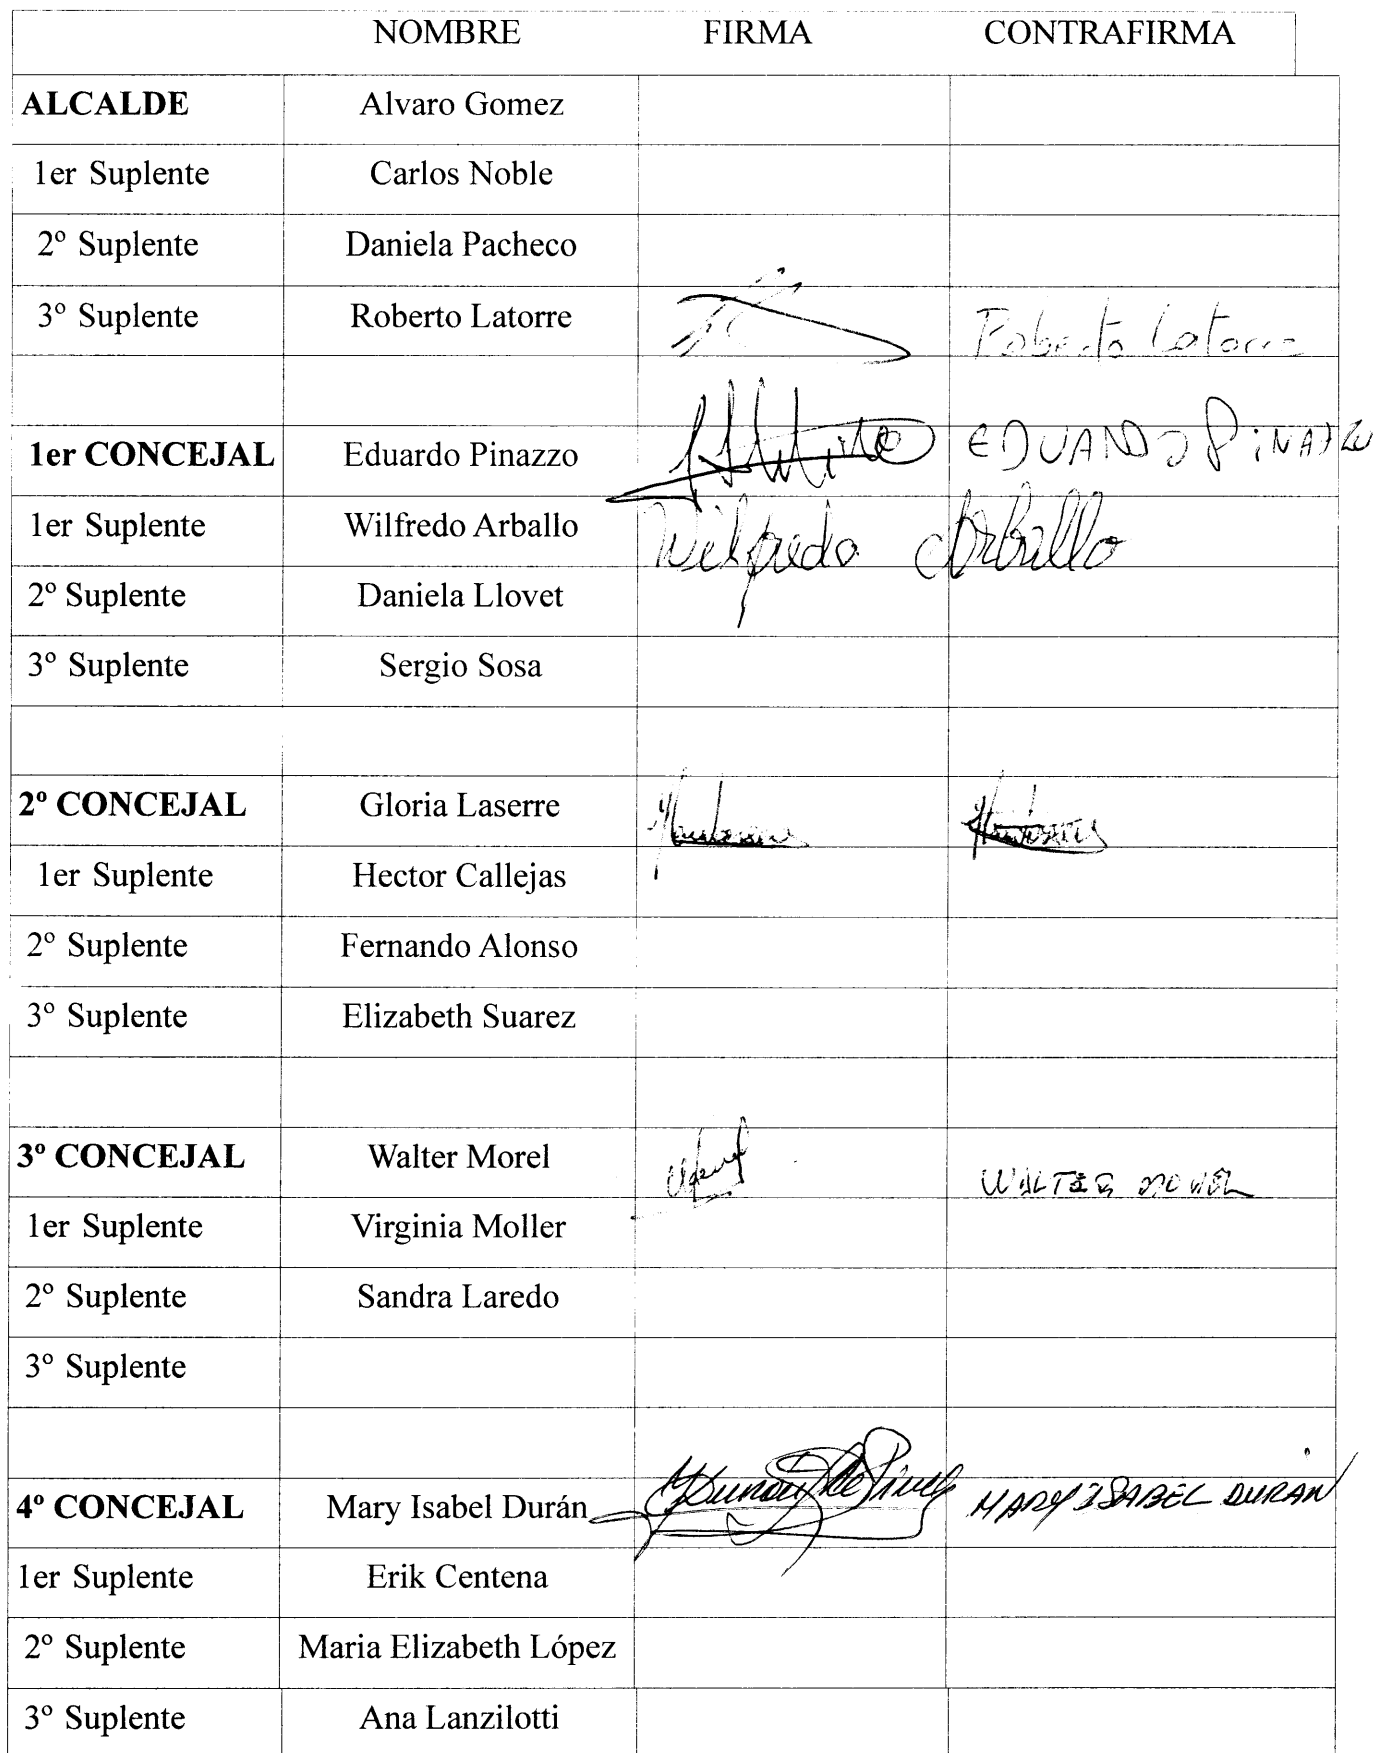 NOMBRE FIRMA CONTRAFIRMA
ALCALDE Alvaro Gomez
1er Suplente Carlos Noble
2º Suplente Daniela Pacheco
3º Suplente Roberto Latorre Roberto Latorre
1er CONCEJAL Eduardo Pinazzo EDUARDO PiNAZZO
1er Suplente Wilfredo Arballo Wilfredo Arballo
2º Suplente Daniela Llovet
3º Suplente Sergio Sosa
2º CONCEJAL Gloria Laserre
1er Suplente Hector Callejas
2º Suplente Fernando Alonso
3º Suplente Elizabeth Suarez
3º CONCEJAL Walter Morel WALTER MOREL
1er Suplente Virginia Moller
2º Suplente Sandra Laredo
3º Suplente
4º CONCEJAL Mary Isabel Durán MARY ISABEL DURÁN
1er Suplente Erik Centena
2º Suplente Maria Elizabeth López
3º Suplente Ana Lanzilotti